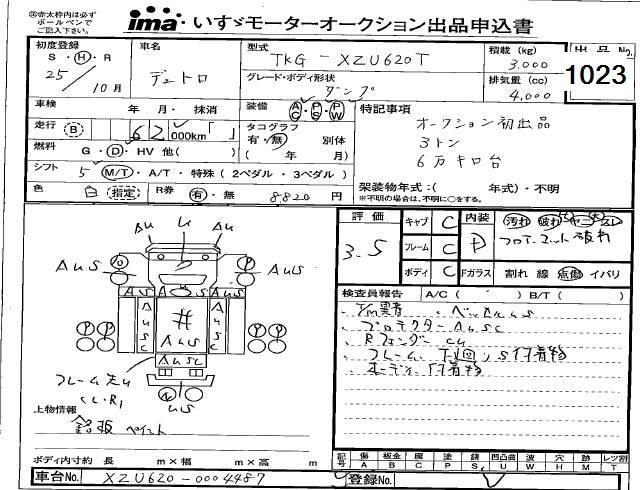 ㊟赤太枠内は必ず
ボールペンで
ご記入ください。
ima いすゞモーターオークション出品申込書
初度登録 S・H・R 25/10月
車名 デュトロ
型式 TKG-XZU620T
グレード・ボディ形状 ダンプ
積載(kg) 3,000
排気量(cc) 4,000
出品No. 1023
車検 年 月・抹消
装備 AC PS PW
走行 B 62000km「 」
タコグラフ 有・無 別体
( 年 月)
燃料 G・D・HV 他( )
シフト 5 M/T・A/T・特殊(2ペダル・3ペダル)
色 白 指定
R券 有・無 8,820円
特記事項
オークション初出品
3トン
6万キロ台
架装物年式:( 年式)・不明
※不明の場合は、不明に○をする。
評価 3.5
キャブ C
フレーム C
ボディ C
内装 D
汚れ 破れ
フロアーマット破れ
Fガラス 割れ 線 点傷 イバリ
検査員報告 A/C( ) B/T( )
T/M異音
プロテクター AUSC
Rフェンダー CU
フレーム、下回りS付着物
ボーディー付着物
AU U AU
AUS AUS
AUS AUS
AUSC AUS AUSC
AUSC
フレーム先U
CL・R1
US
上物情報
鋼板ペイント
ボディ内寸約 長 m×幅 m×高 m
記号 傷A 板金B 腐C 塗P 錆S 凹凸曲U 波W 穴H 跡M レツ割T
車台No. XZU620-0004487
登録No.